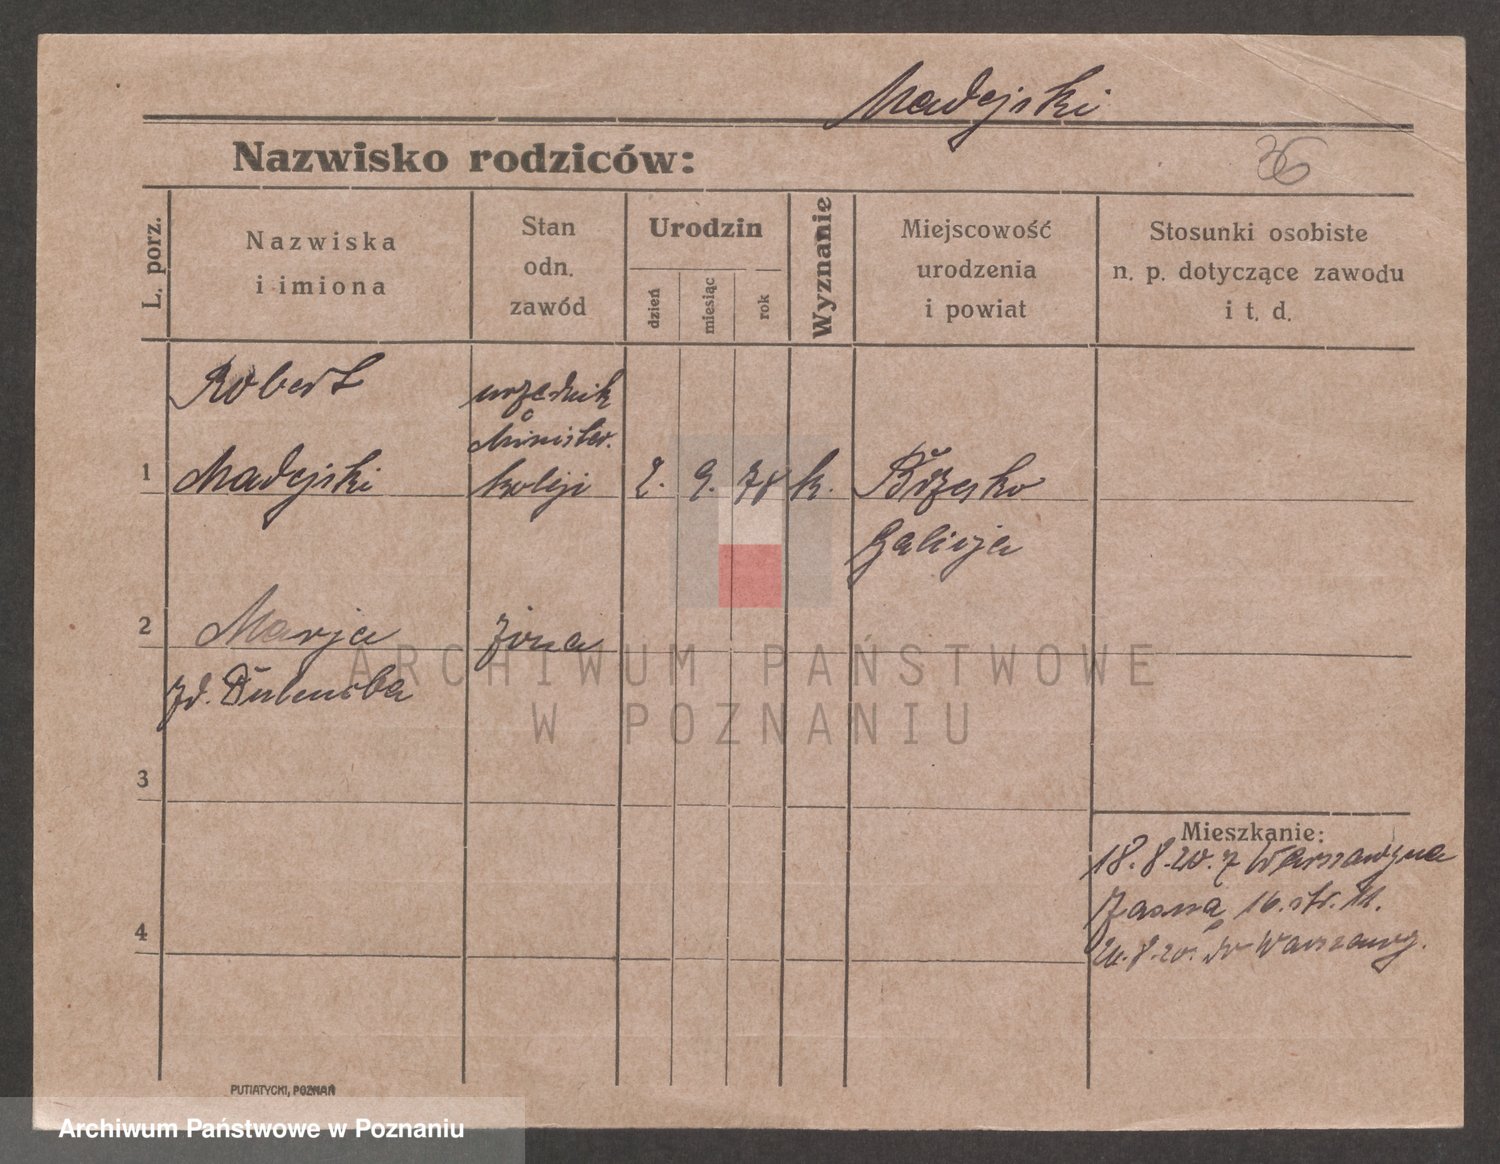 Madejski
Nazwisko rodziców:
36
L. porz.
Nazwiska
i imiona
Stan
odn.
zawód
Urodzin
dzień
miesiąc
rok
Wyznanie
Miejscowość
urodzenia
i powiat
Stosunki osobiste
n. p. dotyczące zawodu
i t. d.
Robert
urzędnik
Minister.
1 Madejski kolej 2. 9. 78 k. Brzesko
Galicja
2 Marja żona
3
Mieszkanie:
18.8.20. z Warszawy na
Jasna 16. str. 11.
4
8.20. do Warszawy.
PUTIATYCKI, POZNAŃ
ARCHIWUM PAŃSTWOWE
W POZNANIU
Archiwum Państwowe w Poznaniu